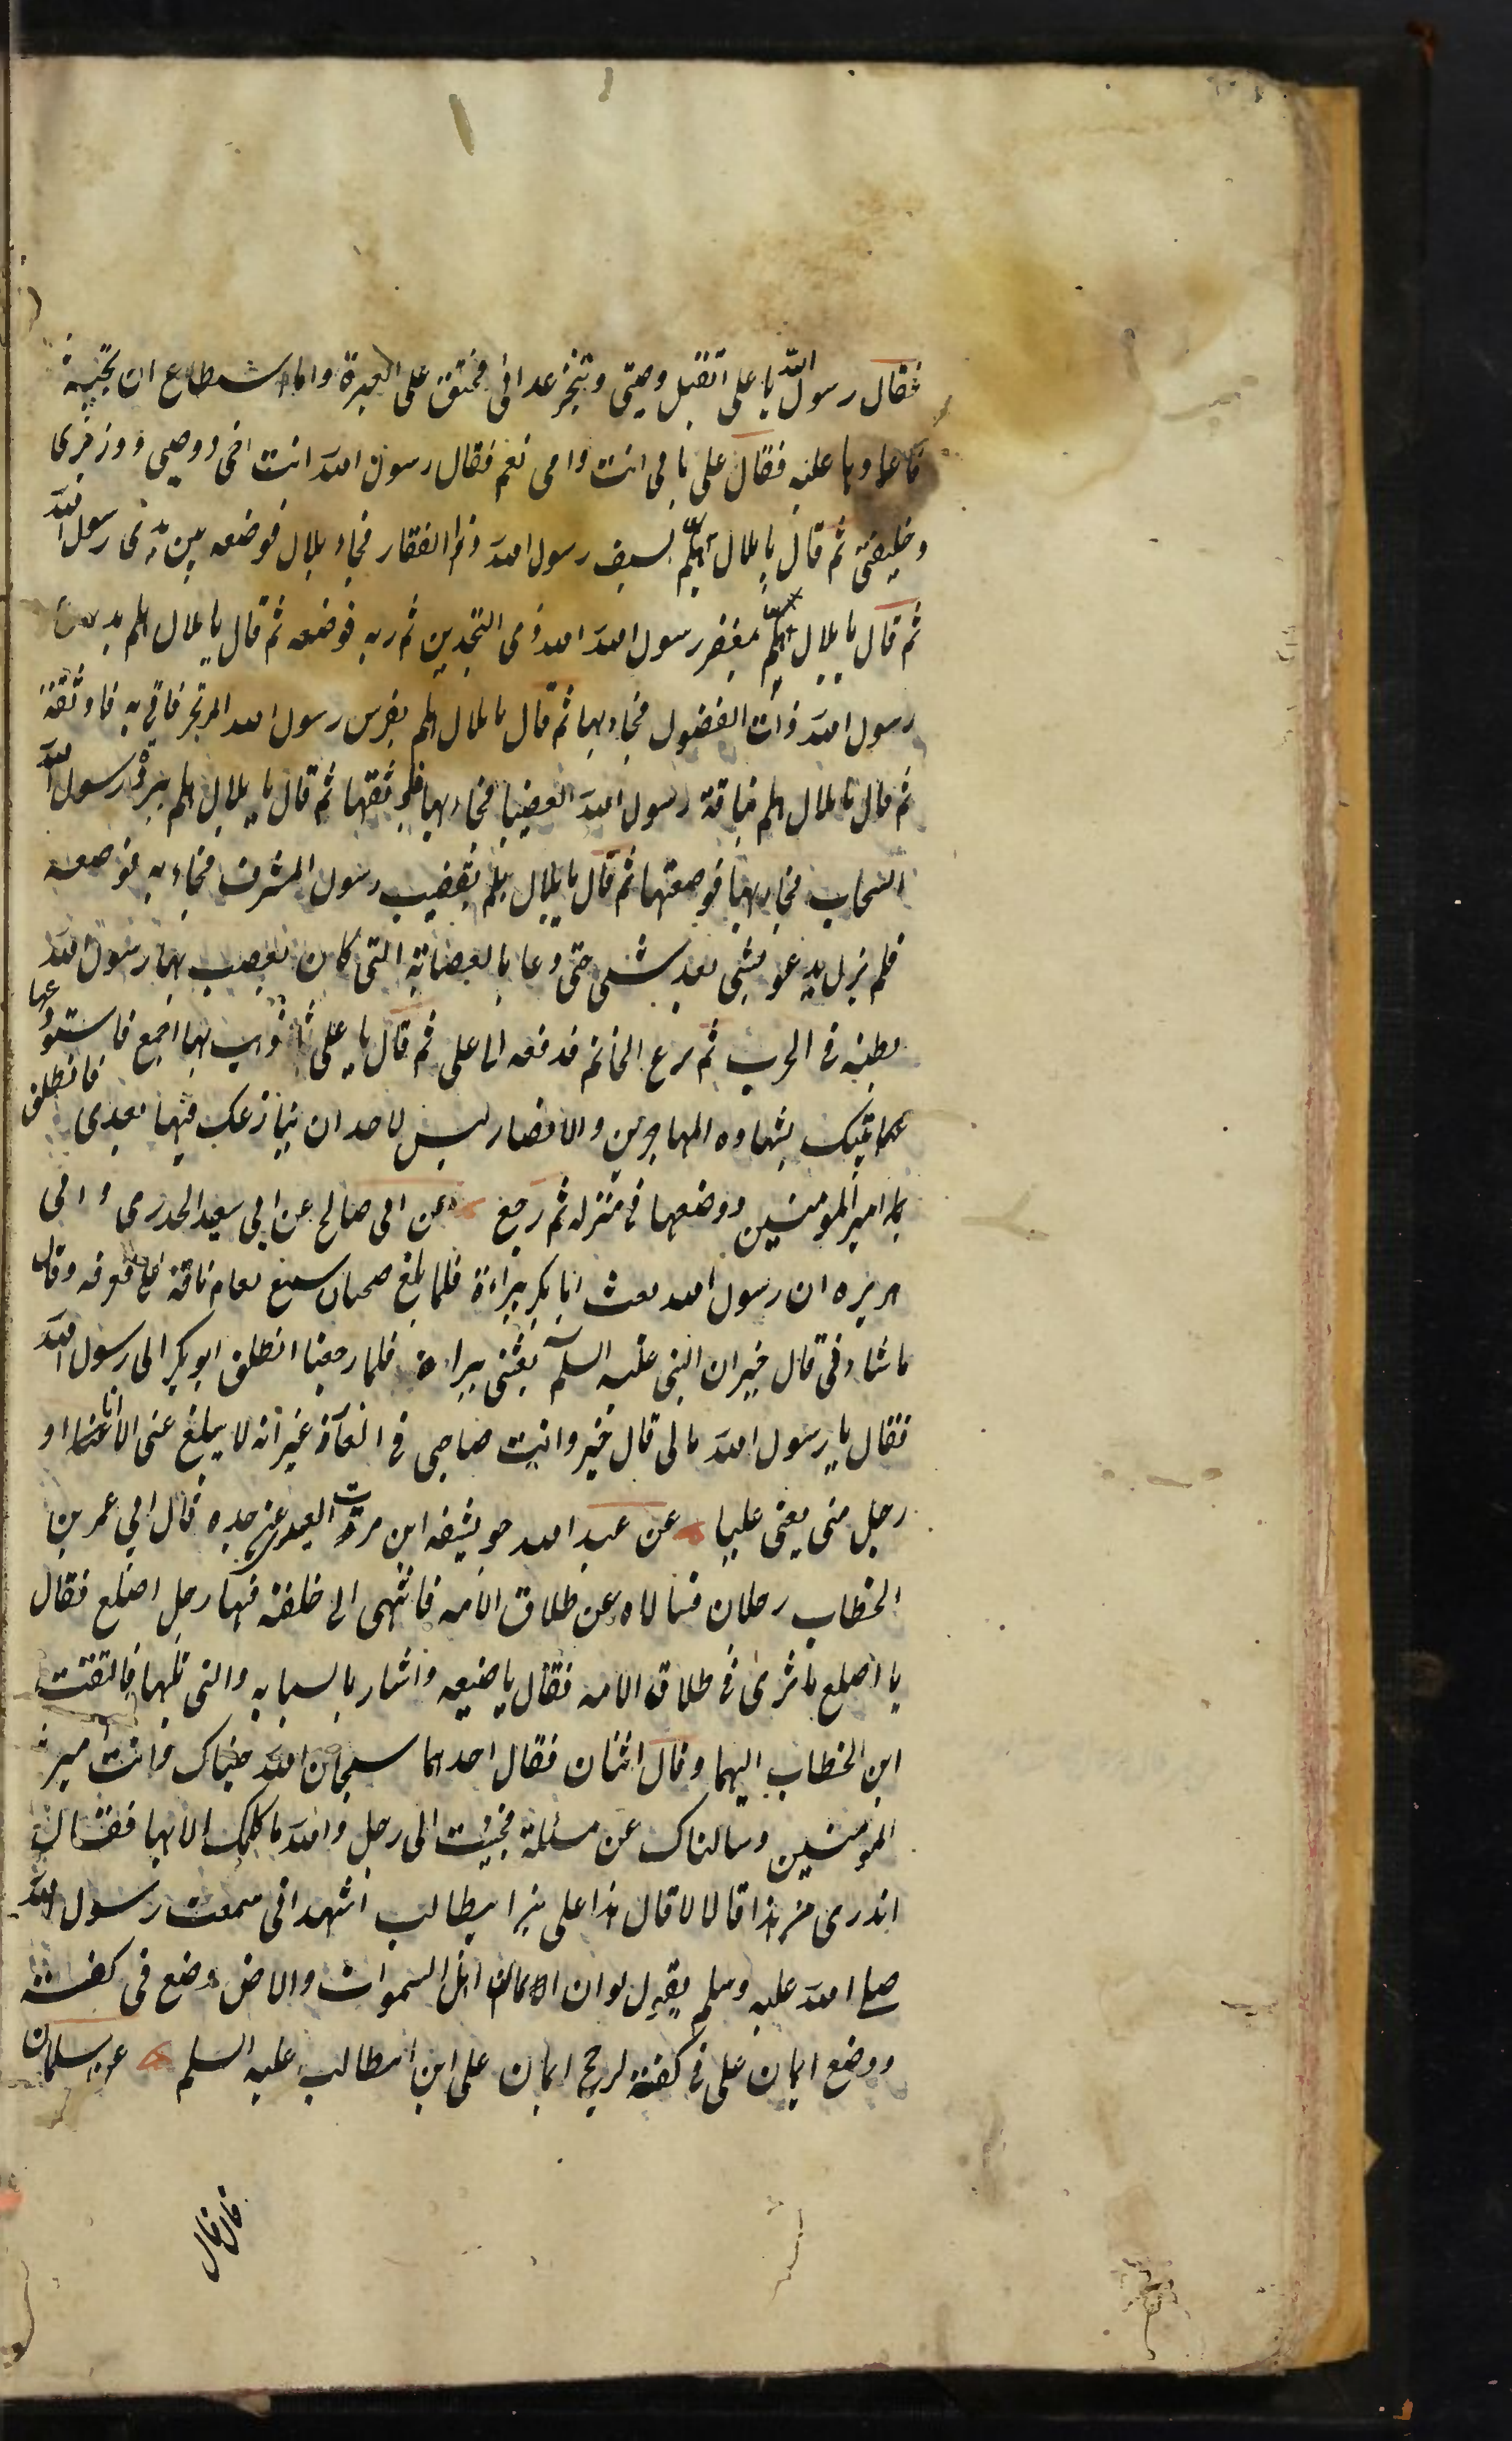 فقال رسول الله يا على اتقبل وصيتى وتنجز عداتى فخنق على العبرة واما استطاع ان يجيبه
فاعادها عليه فقال على بابى انت وامى نعم فقال رسول الله انت اخى ووصيى ووزيرى
وخليفتى ثم قال يا بلال هلم بسيف رسول الله ذو الفقار فجاء بلال فوضعه بين يدى رسول الله
ثم قال يا بلال هلم بمغفر رسول الله فوضعه ثم قال يا بلال هلم بدرع
رسول الله ذات الفضول فجاء بها ثم قال يا بلال هلم بفرس رسول الله المرتجز فاتى به فاوثقه
ثم قال يا بلال هلم بناقة رسول الله العضبا فجاء بها فاوثقها ثم قال يا بلال هلم ببردة رسول الله
السحاب فجاء بها فوضعتها ثم قال يا بلال هلم بقضيب رسول المشرف فجاء به فوضعه
فلم يزل يدعو بشى بعد شى حتى دعا بالعصابة التى كان يعصب بها رسول الله
بطنه فى الحرب ثم نزع الخاتم فدفعه الى على ثم قال يا على اذهب بها اجمع فاستودعها
بيتك بشهاده المهاجرين والانصار ليس لاحد ان ينازعك فيها بعدى فانطلق
بها امير المومنين ووضعها فى منزله ثم رجع عن ابى صالح عن ابى سعيد الخدرى وابى
هريره ان رسول الله بعث ابا بكر ببراءة فلما بلغ ضجنان سمع بغام ناقة على فعرفه وقال
ما شانى قال خير ان النبى عليه السلم بعثنى ببراءة فلما رجعنا انطلق ابو بكر الى رسول الله
فقال يا رسول الله مالى قال خير وانت صاحبى فى الغار غير انه لا يبلغ عنى الا انا او
رجل منى يعنى عليا عن عبد الله ابن العبدى عن جده قال اتى عمر بن
الخطاب رجلان فسالاه عن طلاق الامه فانتهى الى حلقة فيها رجل اصلع فقال
يا اصلع ما ترى فى طلاق الامه فقال باصبعه واشار بالسبابه والتى تليها فالتفت
ابن الخطاب اليهما وقال اثنان فقال احدهما سبحان الله جئناك وانت امير
المومنين وسالناك عن مسئلة فجيت الى رجل والله ما كلمك الا بها فقال
اتدرى من هذا قالا لا قال هذا على بن ابيطالب اشهد انى سمعت رسول الله
صلى الله عليه وسلم يقول لو ان ايمان اهل السموات والارض وضع فى كفة
ووضع ايمان على فى كفة لرجح ايمان على ابن ابيطالب عليه السلم عن سلمان
قال قال